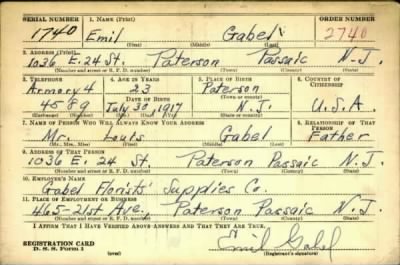 SERIAL NUMBER 1. NAME (Print) ORDER NUMBER
1740 Emil Gabel 2740
(First) (Middle) (Last)
2. ADDRESS (Print)
1036 E. 24 St. Paterson Passaic N.J.
(Number and street or R. F. D. number) (Town) (County) (State)
3. TELEPHONE 4. AGE IN YEARS 5. PLACE OF BIRTH 6. COUNTRY OF CITIZENSHIP
Armory 4 23 Paterson
DATE OF BIRTH (Town or county)
4589 July 30, 1917 N.J. U.S.A.
(Exchange) (Number) (Mo.) (Day) (Yr.) (State or country)
7. NAME OF PERSON WHO WILL ALWAYS KNOW YOUR ADDRESS 8. RELATIONSHIP OF THAT PERSON
Mr. Louis Gabel Father
(Mr., Mrs., Miss) (First) (Middle) (Last)
9. ADDRESS OF THAT PERSON
1036 E. 24 St. Paterson Passaic N.J.
(Number and street or R. F. D. number) (Town) (County) (State)
10. EMPLOYER'S NAME
Gabel Florists' Supplies Co.
11. PLACE OF EMPLOYMENT OR BUSINESS
465-21st Ave., Paterson Passaic N.J.
(Number and street or R. F. D. number) (Town) (County) (State)
I AFFIRM THAT I HAVE VERIFIED ABOVE ANSWERS AND THAT THEY ARE TRUE.
REGISTRATION CARD Emil Gabel
D. S. S. Form 1 (Registrant's signature)